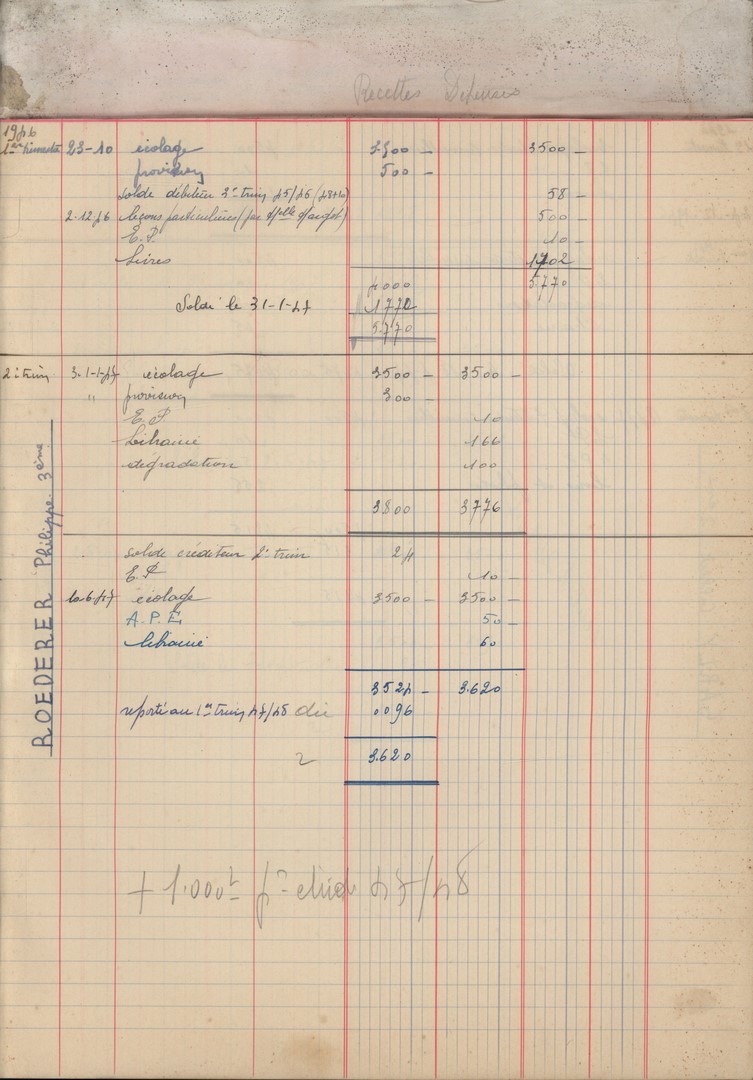 Recettes Dépenses
1946
1er trimestre 23-10 écolage 3500 – 3500 –
provision 500 –
Solde débiteur 3e trim 45/46 (48+10) 58 –
2-12-46 leçons particulières (par Melle) 500 –
E.P. 10 –
Livres 1702
4000 5770
Solde le 31-1-47 1770
5770
2e trim 31-1-47 écolage 3500 – 3500 –
" provision 300 –
E.P. 10
Librairie 166
dégradation 100
3800 3776
solde créditeur 2e trim 24
E.P. 10 –
10-6-47 écolage 3500 – 3500 –
A.P.E 50 –
librairie 60
3524 – 3.620
reporté au 1er trim 47/48 dû 0096
3.620
+ 1.000 47/48
ROEDERER Philippe. 3ème